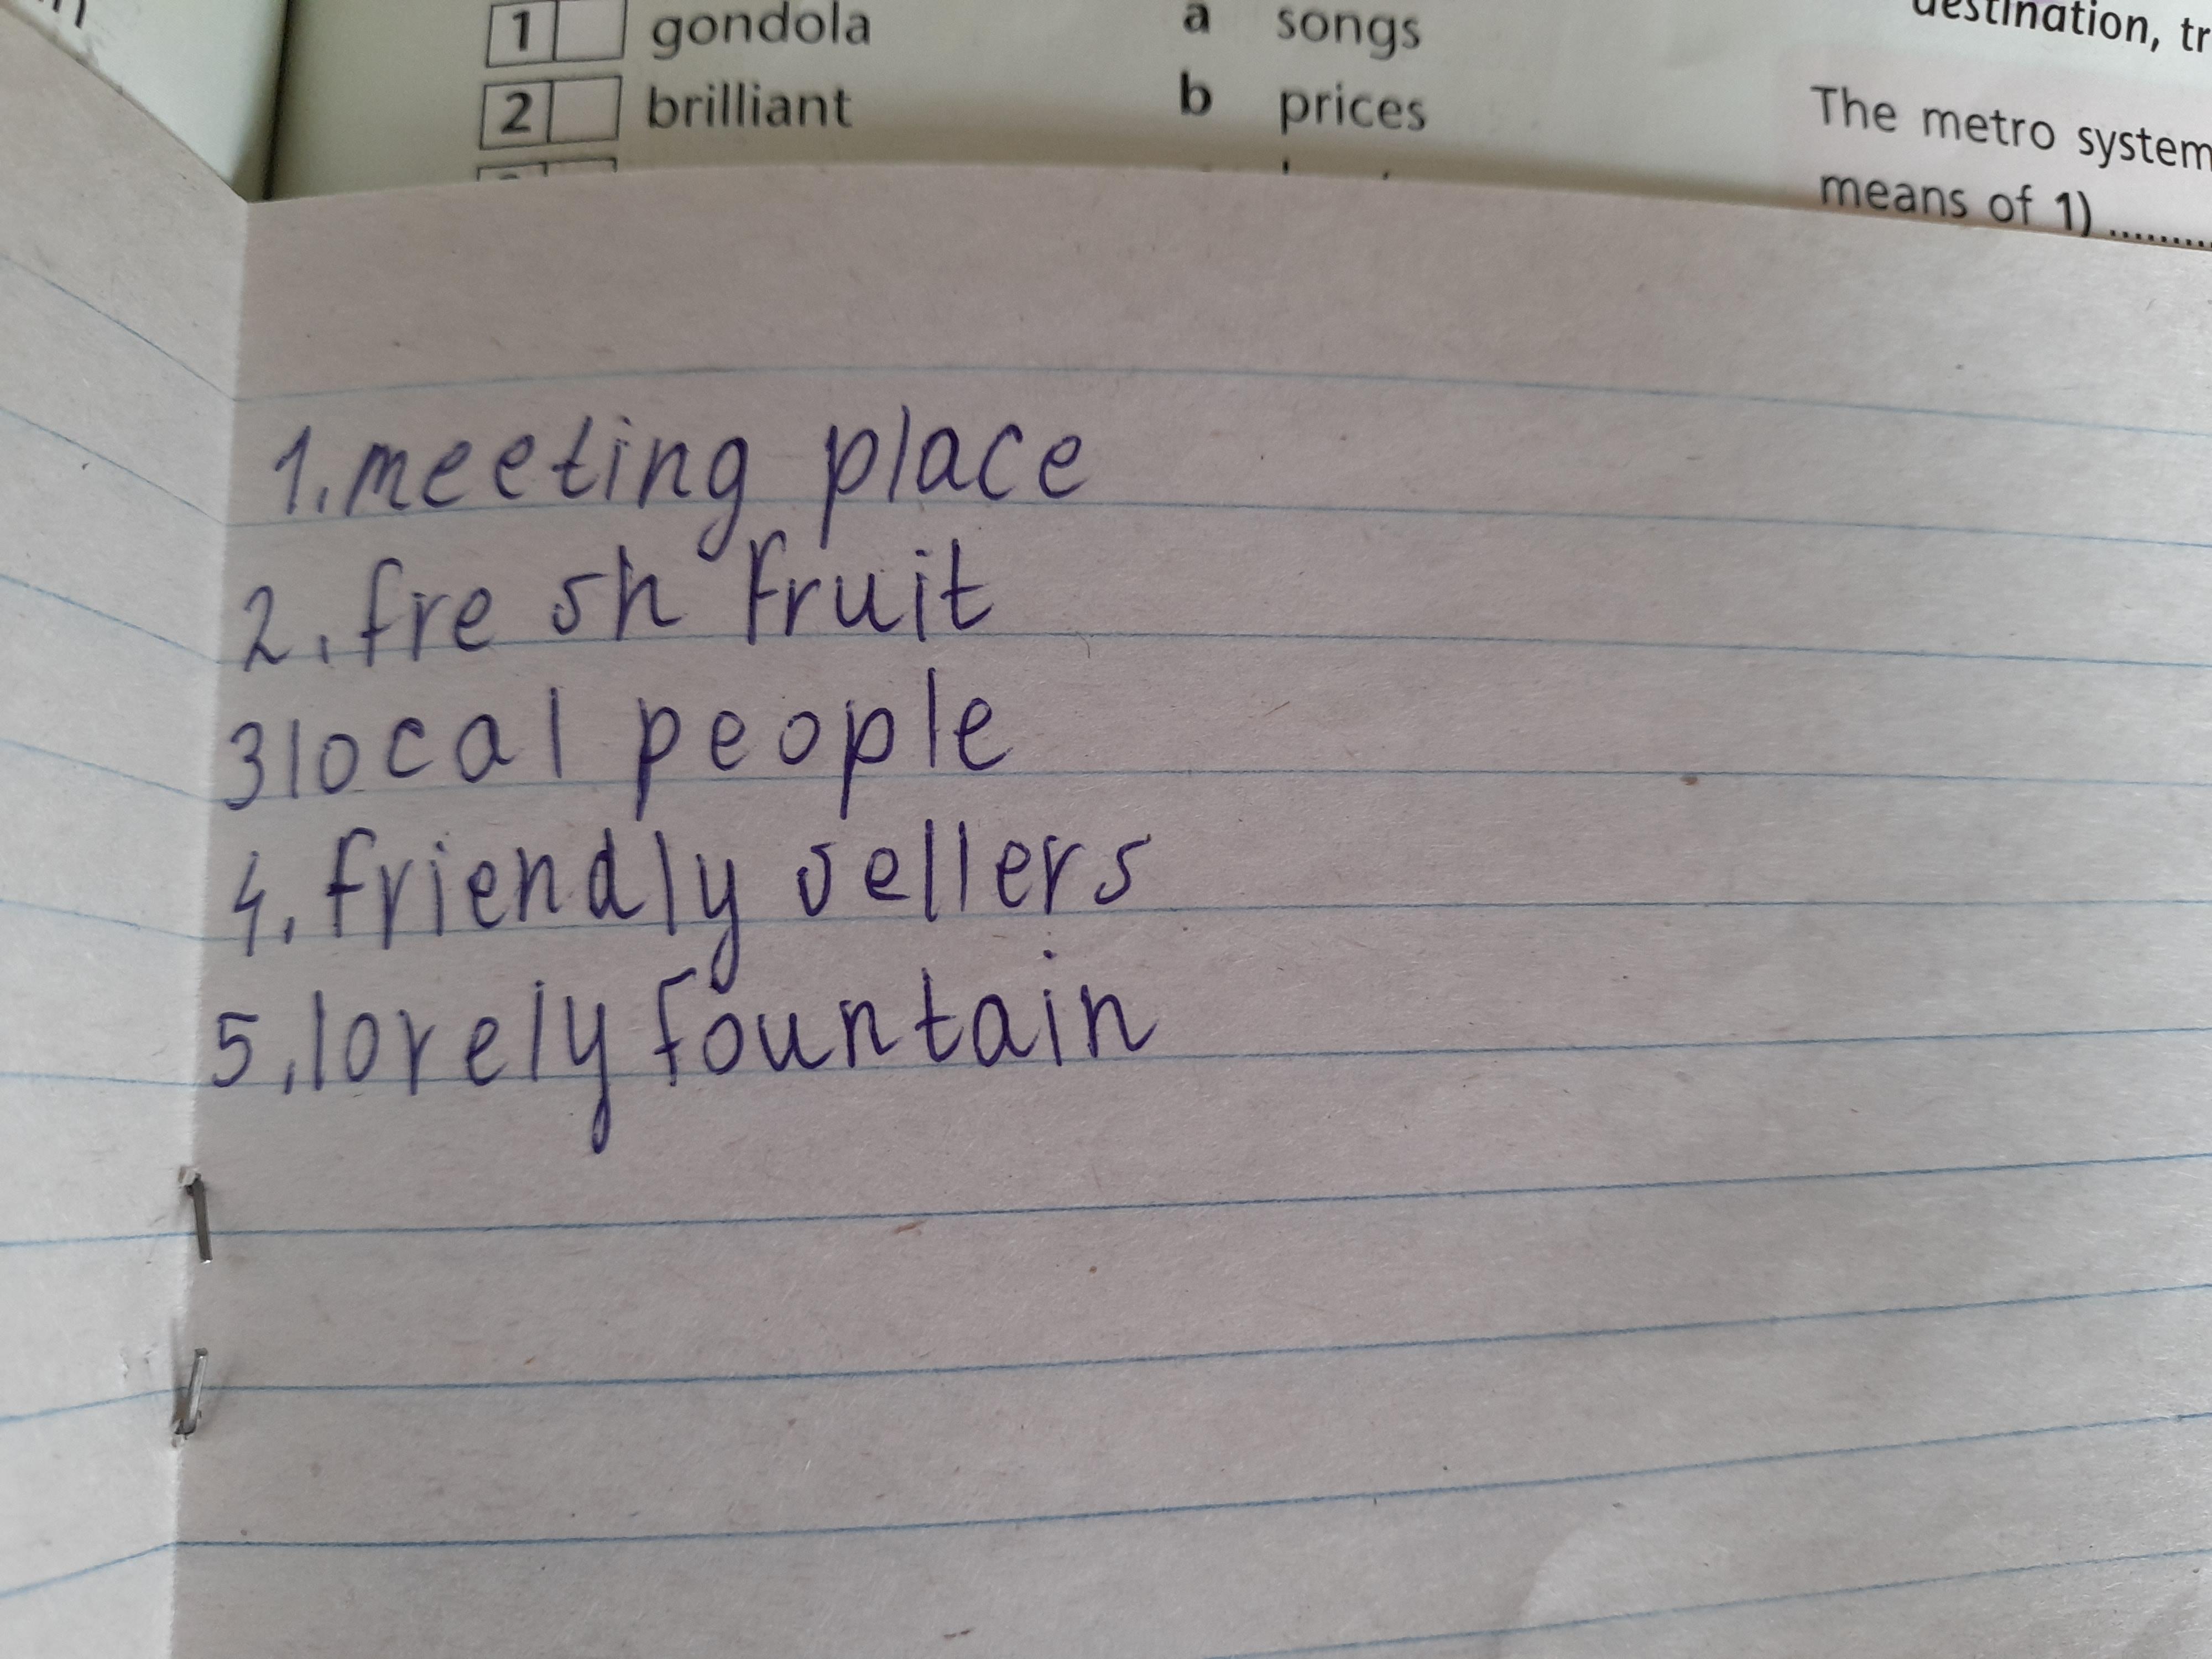 1 gondola a songs
2 brilliant b prices
destination, tr
The metro system
means of 1) ........
1. meeting place
2. fresh fruit
3 local people
4. friendly sellers
5. lovely fountain